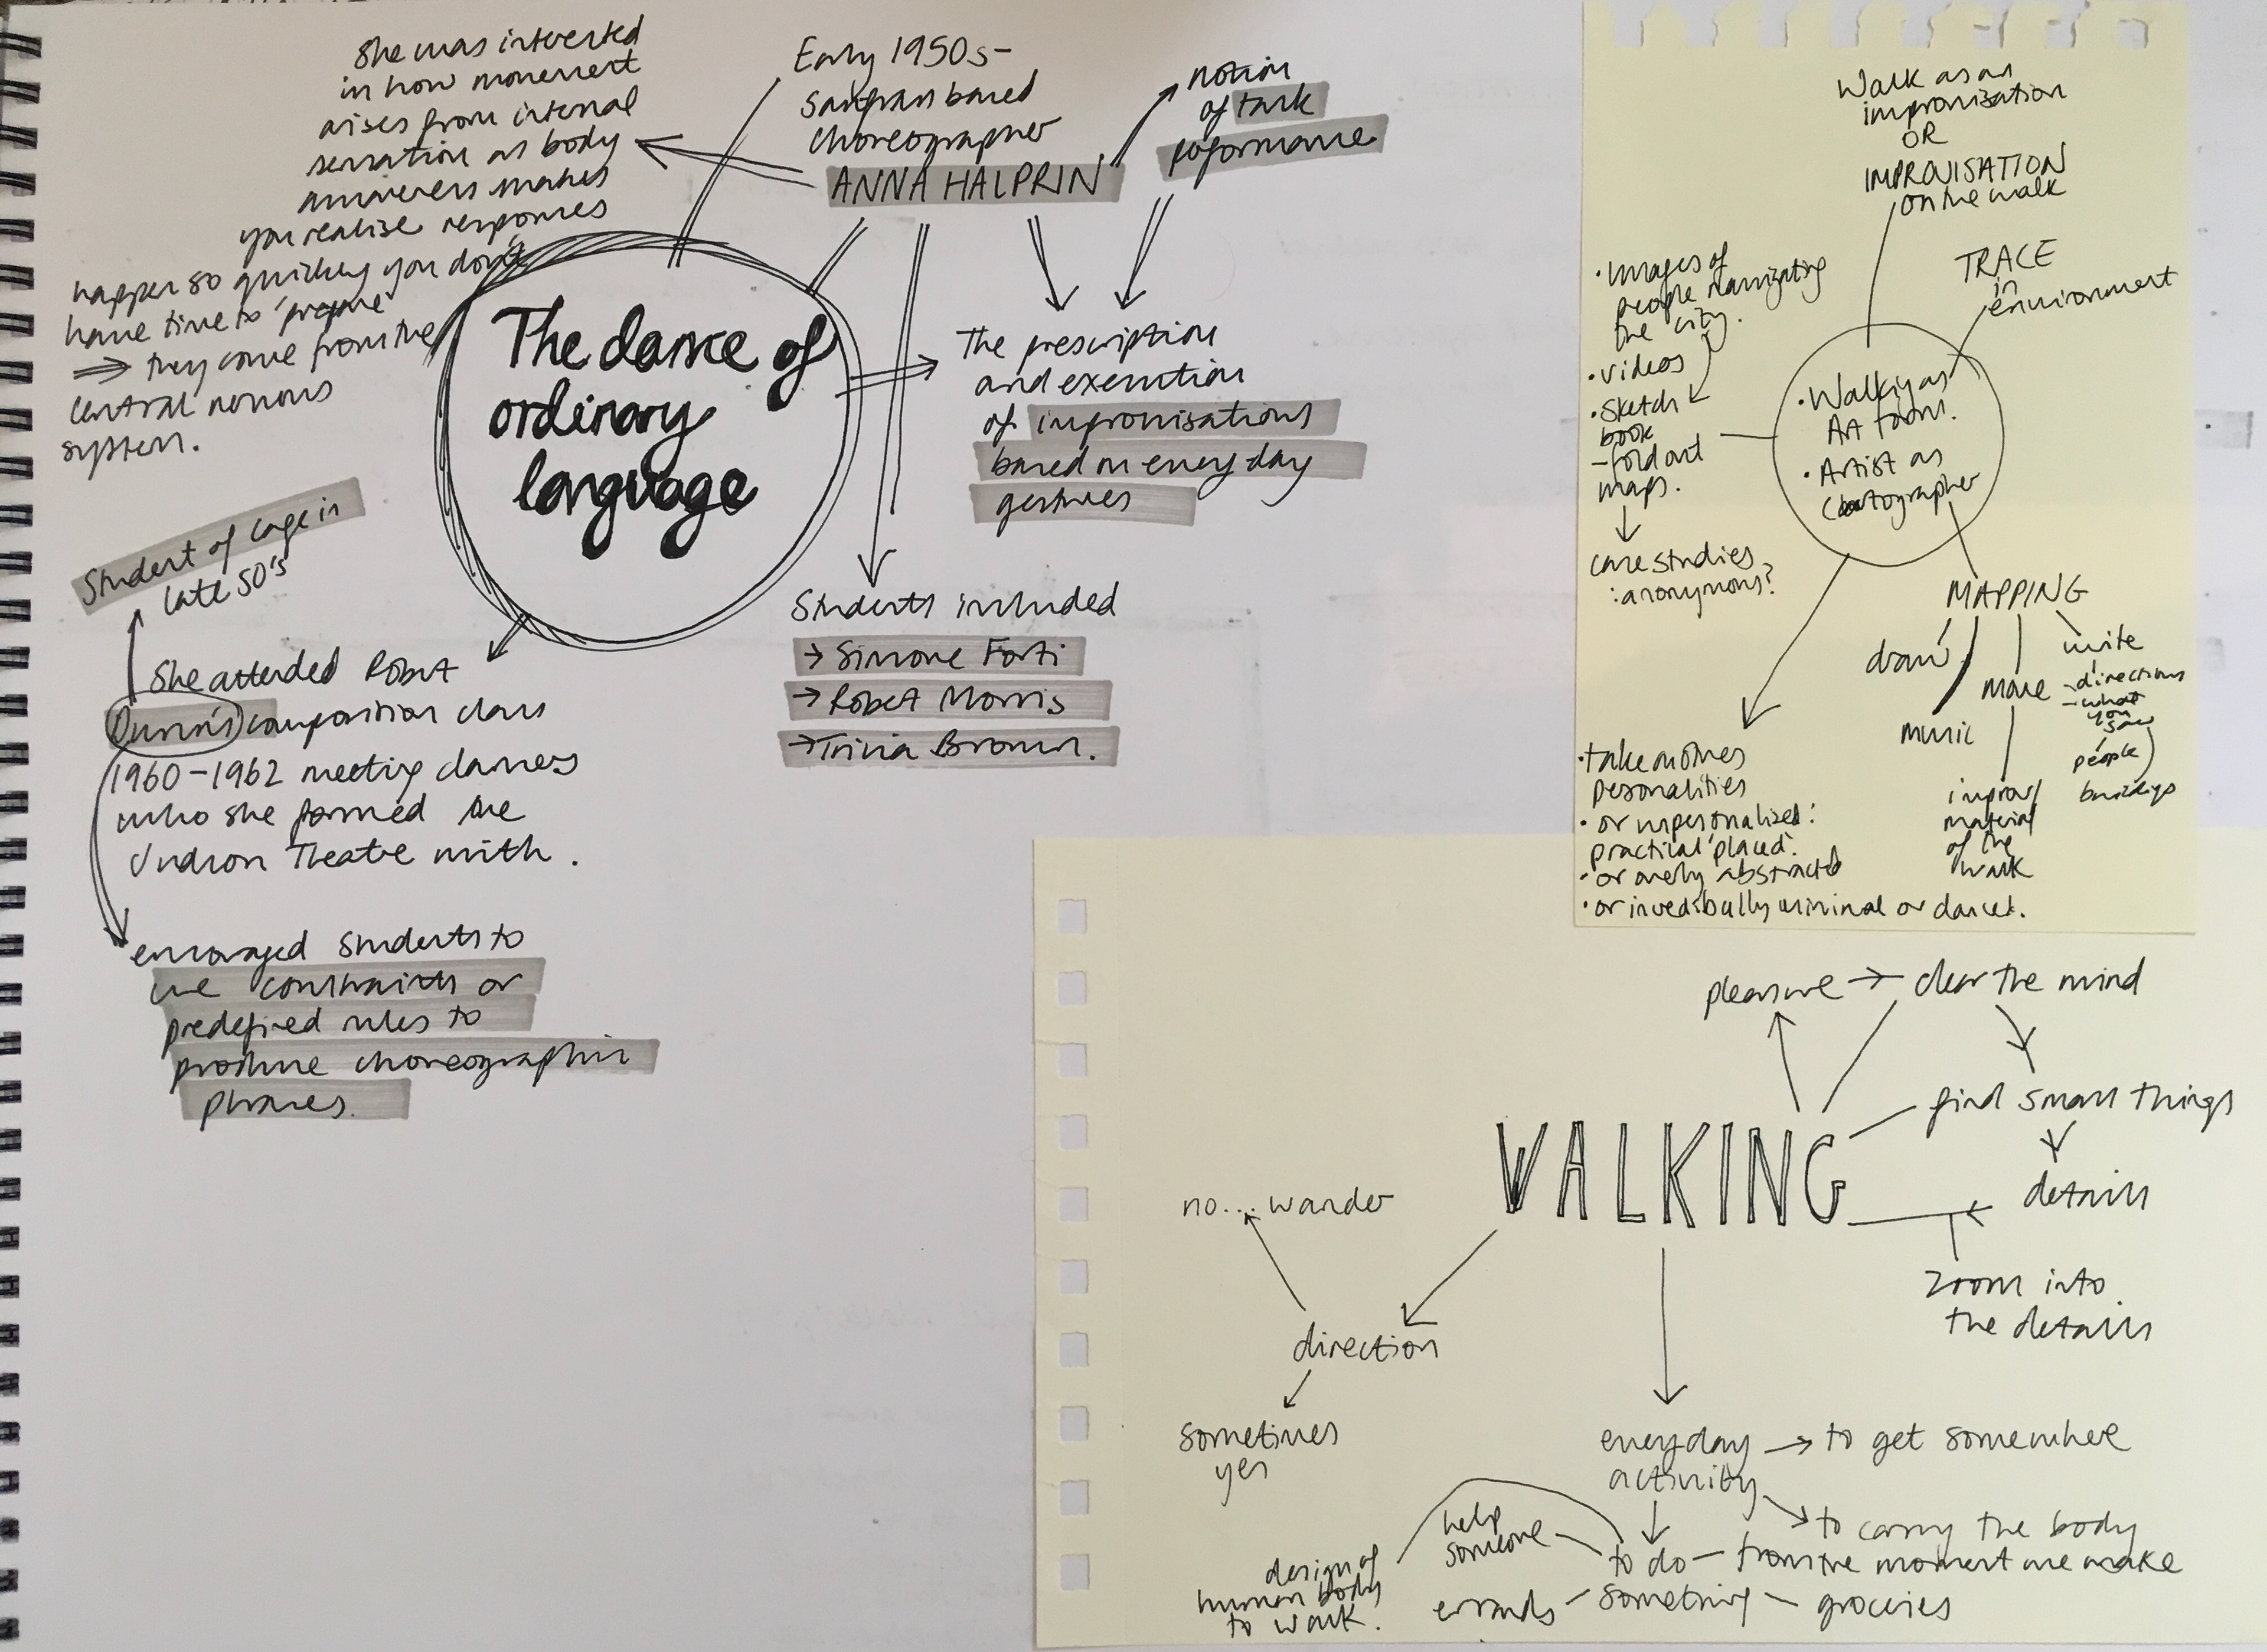 She was interested
in how movement
arises from internal
sensation as body
answers makes
you realise responses
happen so quickly you don't
have time to 'prepare'
⇒ they come from the
central nervous
system.
Early 1950s-
Sanfran based
choreographer
ANNA HALPRIN
notion
of task
performance
The dance of
ordinary
language
The prescription
and execution
of improvisations
based on every day
gestures
Students included
→ Simone Forti
→ Robert Morris
→ Trivia Brown.
Student of Cage in
late 50's
She attended Robert
Dunn's composition class
1960-1962 meeting dancers
who she formed the
Judson Theatre with.
encouraged students to
use constraints or
predefined rules to
produce choreographic
phrases.
Walk as an
improvisation
OR
IMPROVISATION
on the walk
TRACE
in
environment
• Images of
people navigating
the city.
• videos
• sketch
book
- fold out
maps.
case studies
: anonymous?
• Walking as
Art form.
• Artist as
Cartographer
MAPPING
draw
music
move
write
- directions
- what
you
saw
people
buildings
improv/
material
of the
walk
• take on ones
personalities
• or unpersonalised:
practical 'placed'.
• or overly abstracted
• or incredibally minimal or danced.
pleasure → clear the mind
find small things
details
zoom into
the details
WALKING
no... wander
direction
sometimes
yes
everyday → to get somewhere
activity
to carry the body
from the moment we wake
help
someone
to do
something
design of
human body
to walk.
errands
groceries